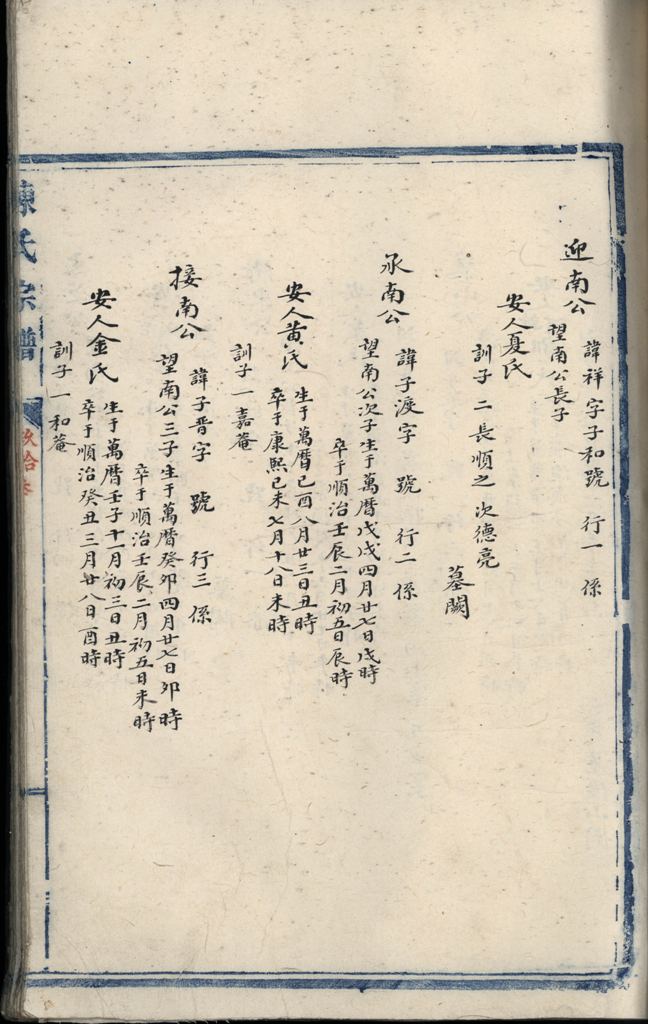 迎南公
諱祥字子和號 行一 係
望南公長子
安人夏氏
訓子 二 長順之 次德亮
墓闕
承南公
諱子渡字 號 行二 係
望南公次子生于萬曆戊戌四月廿七日戌時
卒于順治壬辰二月初五日辰時
安人黄氏
生于萬曆己酉八月廿三日丑時
卒于康熙己未七月十八日未時
訓子 一 嘉菴
接南公
諱子晋字 號 行三 係
望南公三子生于萬曆癸卯四月廿七日卯時
卒于順治壬辰二月初五日未時
安人金氏
生于萬曆壬子十一月初三日丑時
卒于順治癸丑三月廿八日酉時
訓子 一 和菴
陳氏宗譜